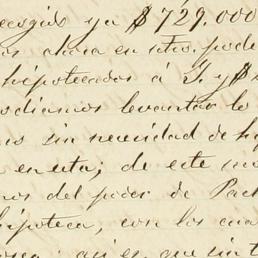 recogido ya $729.000
ahora en ntro. pode
hipotecados á Y. y B
podiamos levantar lo
sin necesidad de hy
en esta; de este mo
nos del poder de Pach
hipoteca, con los cua
asi es que sin t